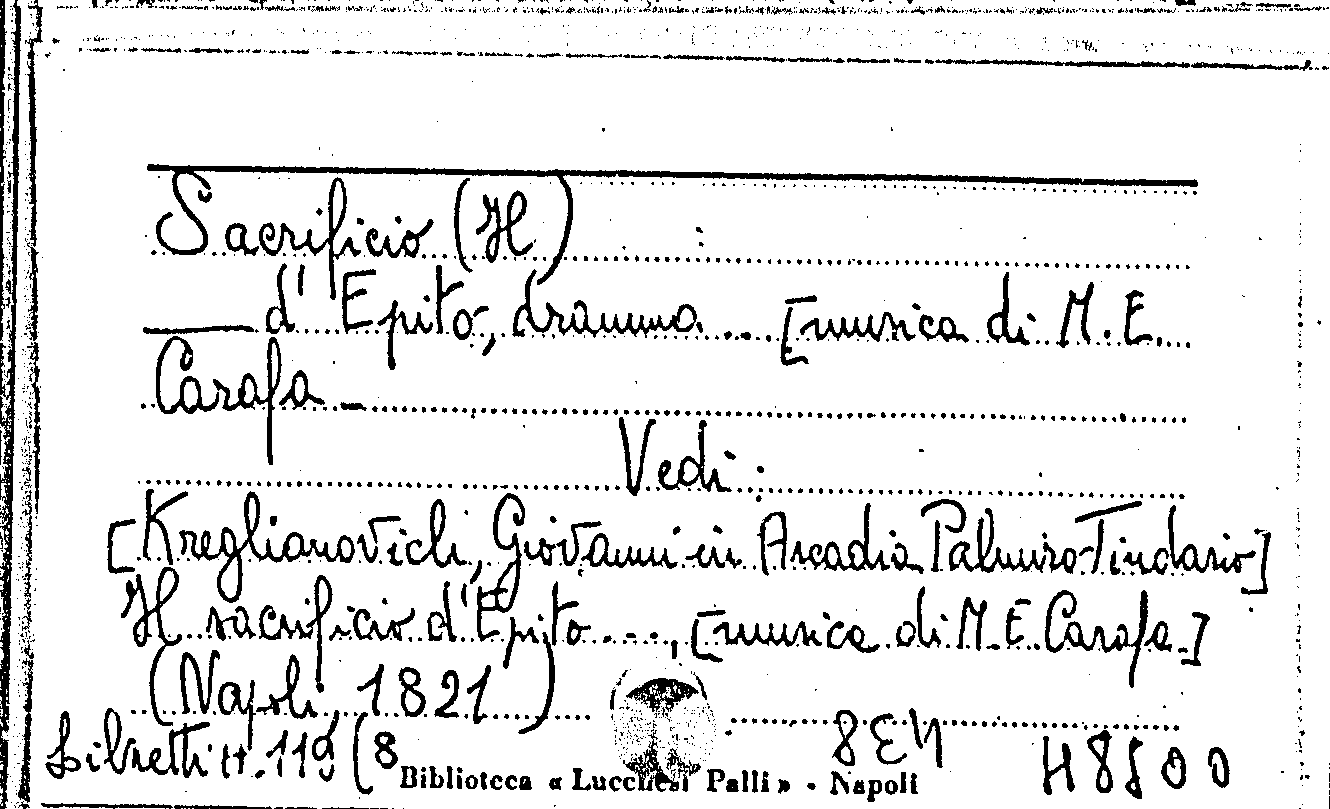 Sacrificio (Il)
d'Epito, dramma ... [musica di M. E.
Carafa _
Vedi:
[Kreglianovich, Giovanni in Arcadia Palmiro Tindario]
Il sacrificio d'Epito ...., [musica di M. E. Carafa.]
(Napoli, 1821)
Libretti tt. 119 (8
Biblioteca « Lucchesi Palli » - Napoli